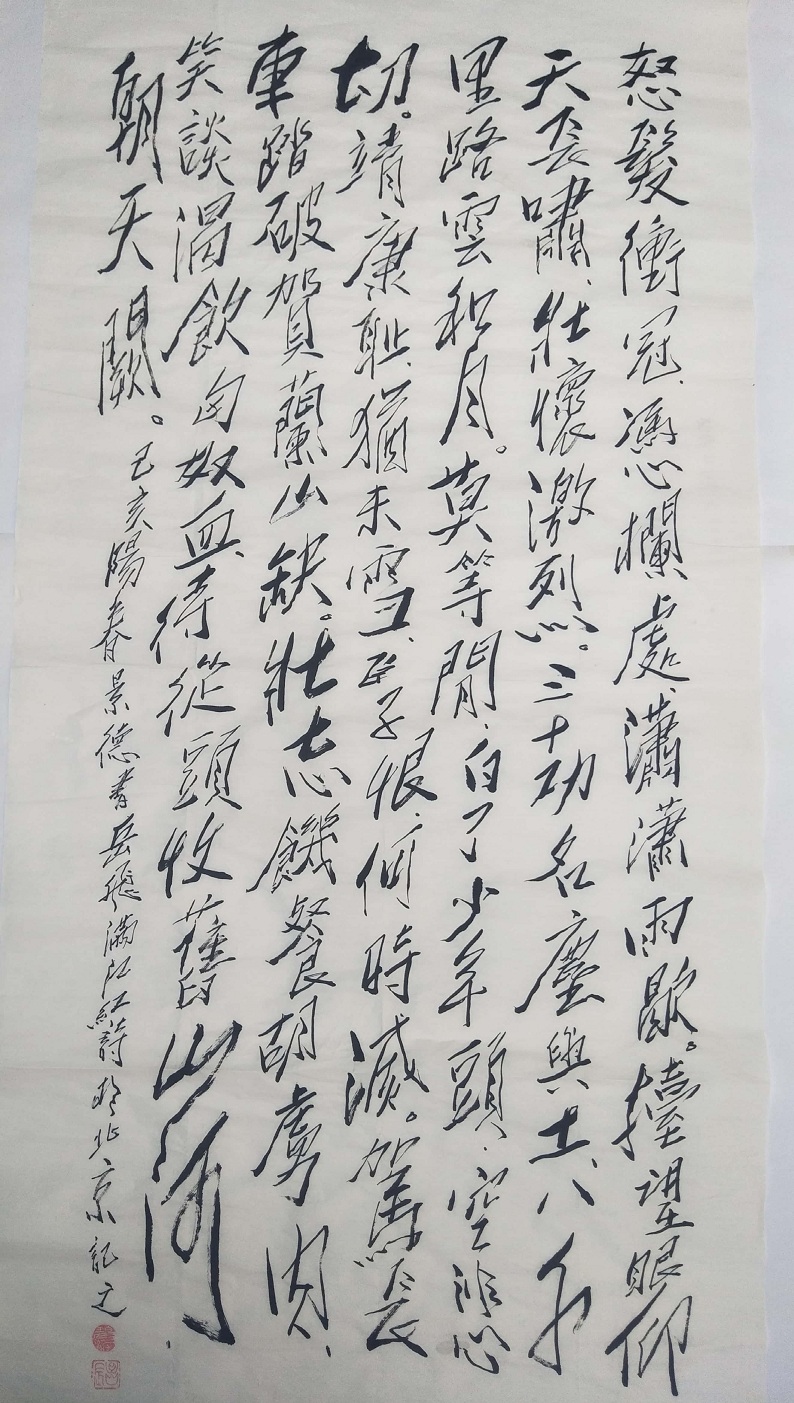 怒髮衝冠、憑欄處、瀟瀟雨歇。擡望眼仰
天長嘯、壯懷激烈。三十功名塵與土、八千
里路雲和月。莫等閒、白了少年頭、空悲
切。靖康耻、猶未雪、臣子恨、何時滅。駕長
車踏破賀蘭山缺。壯志飢餐胡虜肉、
笑談渴飲匈奴血、待從頭收舊山河、
朝天闕。
己亥陽春景德書岳飛滿江紅詩於北京記之